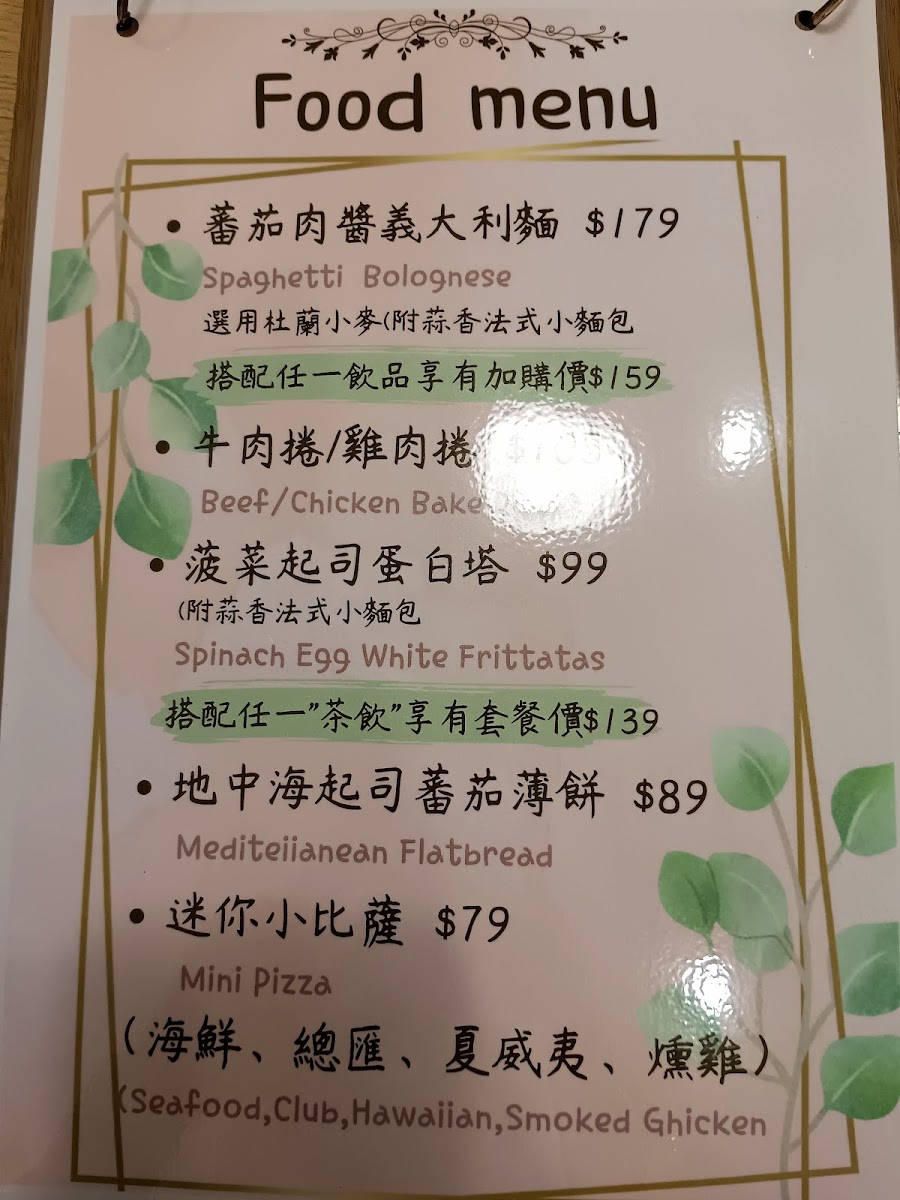 Food menu
• 蕃茄肉醬義大利麵 $179
Spaghetti Bolognese
選用杜蘭小麥(附蒜香法式小麵包
搭配任一飲品享有加購價$159
• 牛肉捲/雞肉捲
Beef/Chicken Bake
• 菠菜起司蛋白塔 $99
(附蒜香法式小麵包
Spinach Egg White Frittatas
搭配任一"茶飲"享有套餐價$139
• 地中海起司蕃茄薄餅 $89
Mediteiianean Flatbread
• 迷你小比薩 $79
Mini Pizza
(海鮮、總匯、夏威夷、燻雞)
(Seafood,Club,Hawaiian,Smoked Ghicken